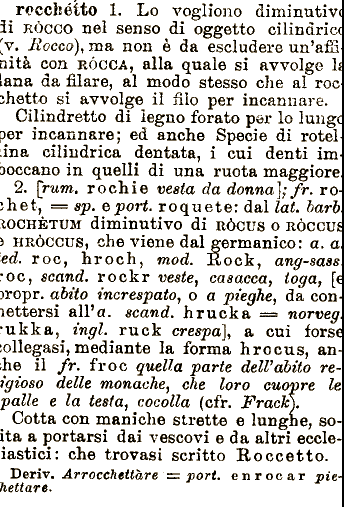 rocchétto 1. Lo vogliono diminutivo
di RÒCCO nel senso di oggetto cilindrico
(v. Rocco), ma non è da escludere un'affi-
nità con RÓCCA, alla quale si avvolge la
lana da filare, al modo stesso che al roc-
chetto si avvolge il filo per incannare.
Cilindretto di legno forato per lo lungo
per incannare; ed anche Specie di rotel-
lina cilindrica dentata, i cui denti im-
boccano in quelli di una ruota maggiore.
2. [rum. rochie vesta da donna]; fr. ro-
chet, = sp. e port. roquete: dal lat. barb.
ROCHÈTUM diminutivo di RÒCUS o RÒCCUS
e HRÒCCUS, che viene dal germanico: a. a.
ted. roc, hroch, mod. Rock, ang-sass.
roc, scand. rockr veste, casacca, toga, [e
propr. abito increspato, o a pieghe, da con-
nettersi all'a. scand. hrucka = norveg.
rukka, ingl. ruck crespa], a cui forse
collegasi, mediante la forma hrocus, an-
che il fr. froc quella parte dell'abito re-
ligioso delle monache, che loro cuopre le
spalle e la testa, cocolla (cfr. Frack).
Cotta con maniche strette e lunghe, so-
lita a portarsi dai vescovi e da altri eccle-
siastici: che trovasi scritto Roccetto.
Deriv. Arrocchettàre = port. enrocar pie-
ghettare.